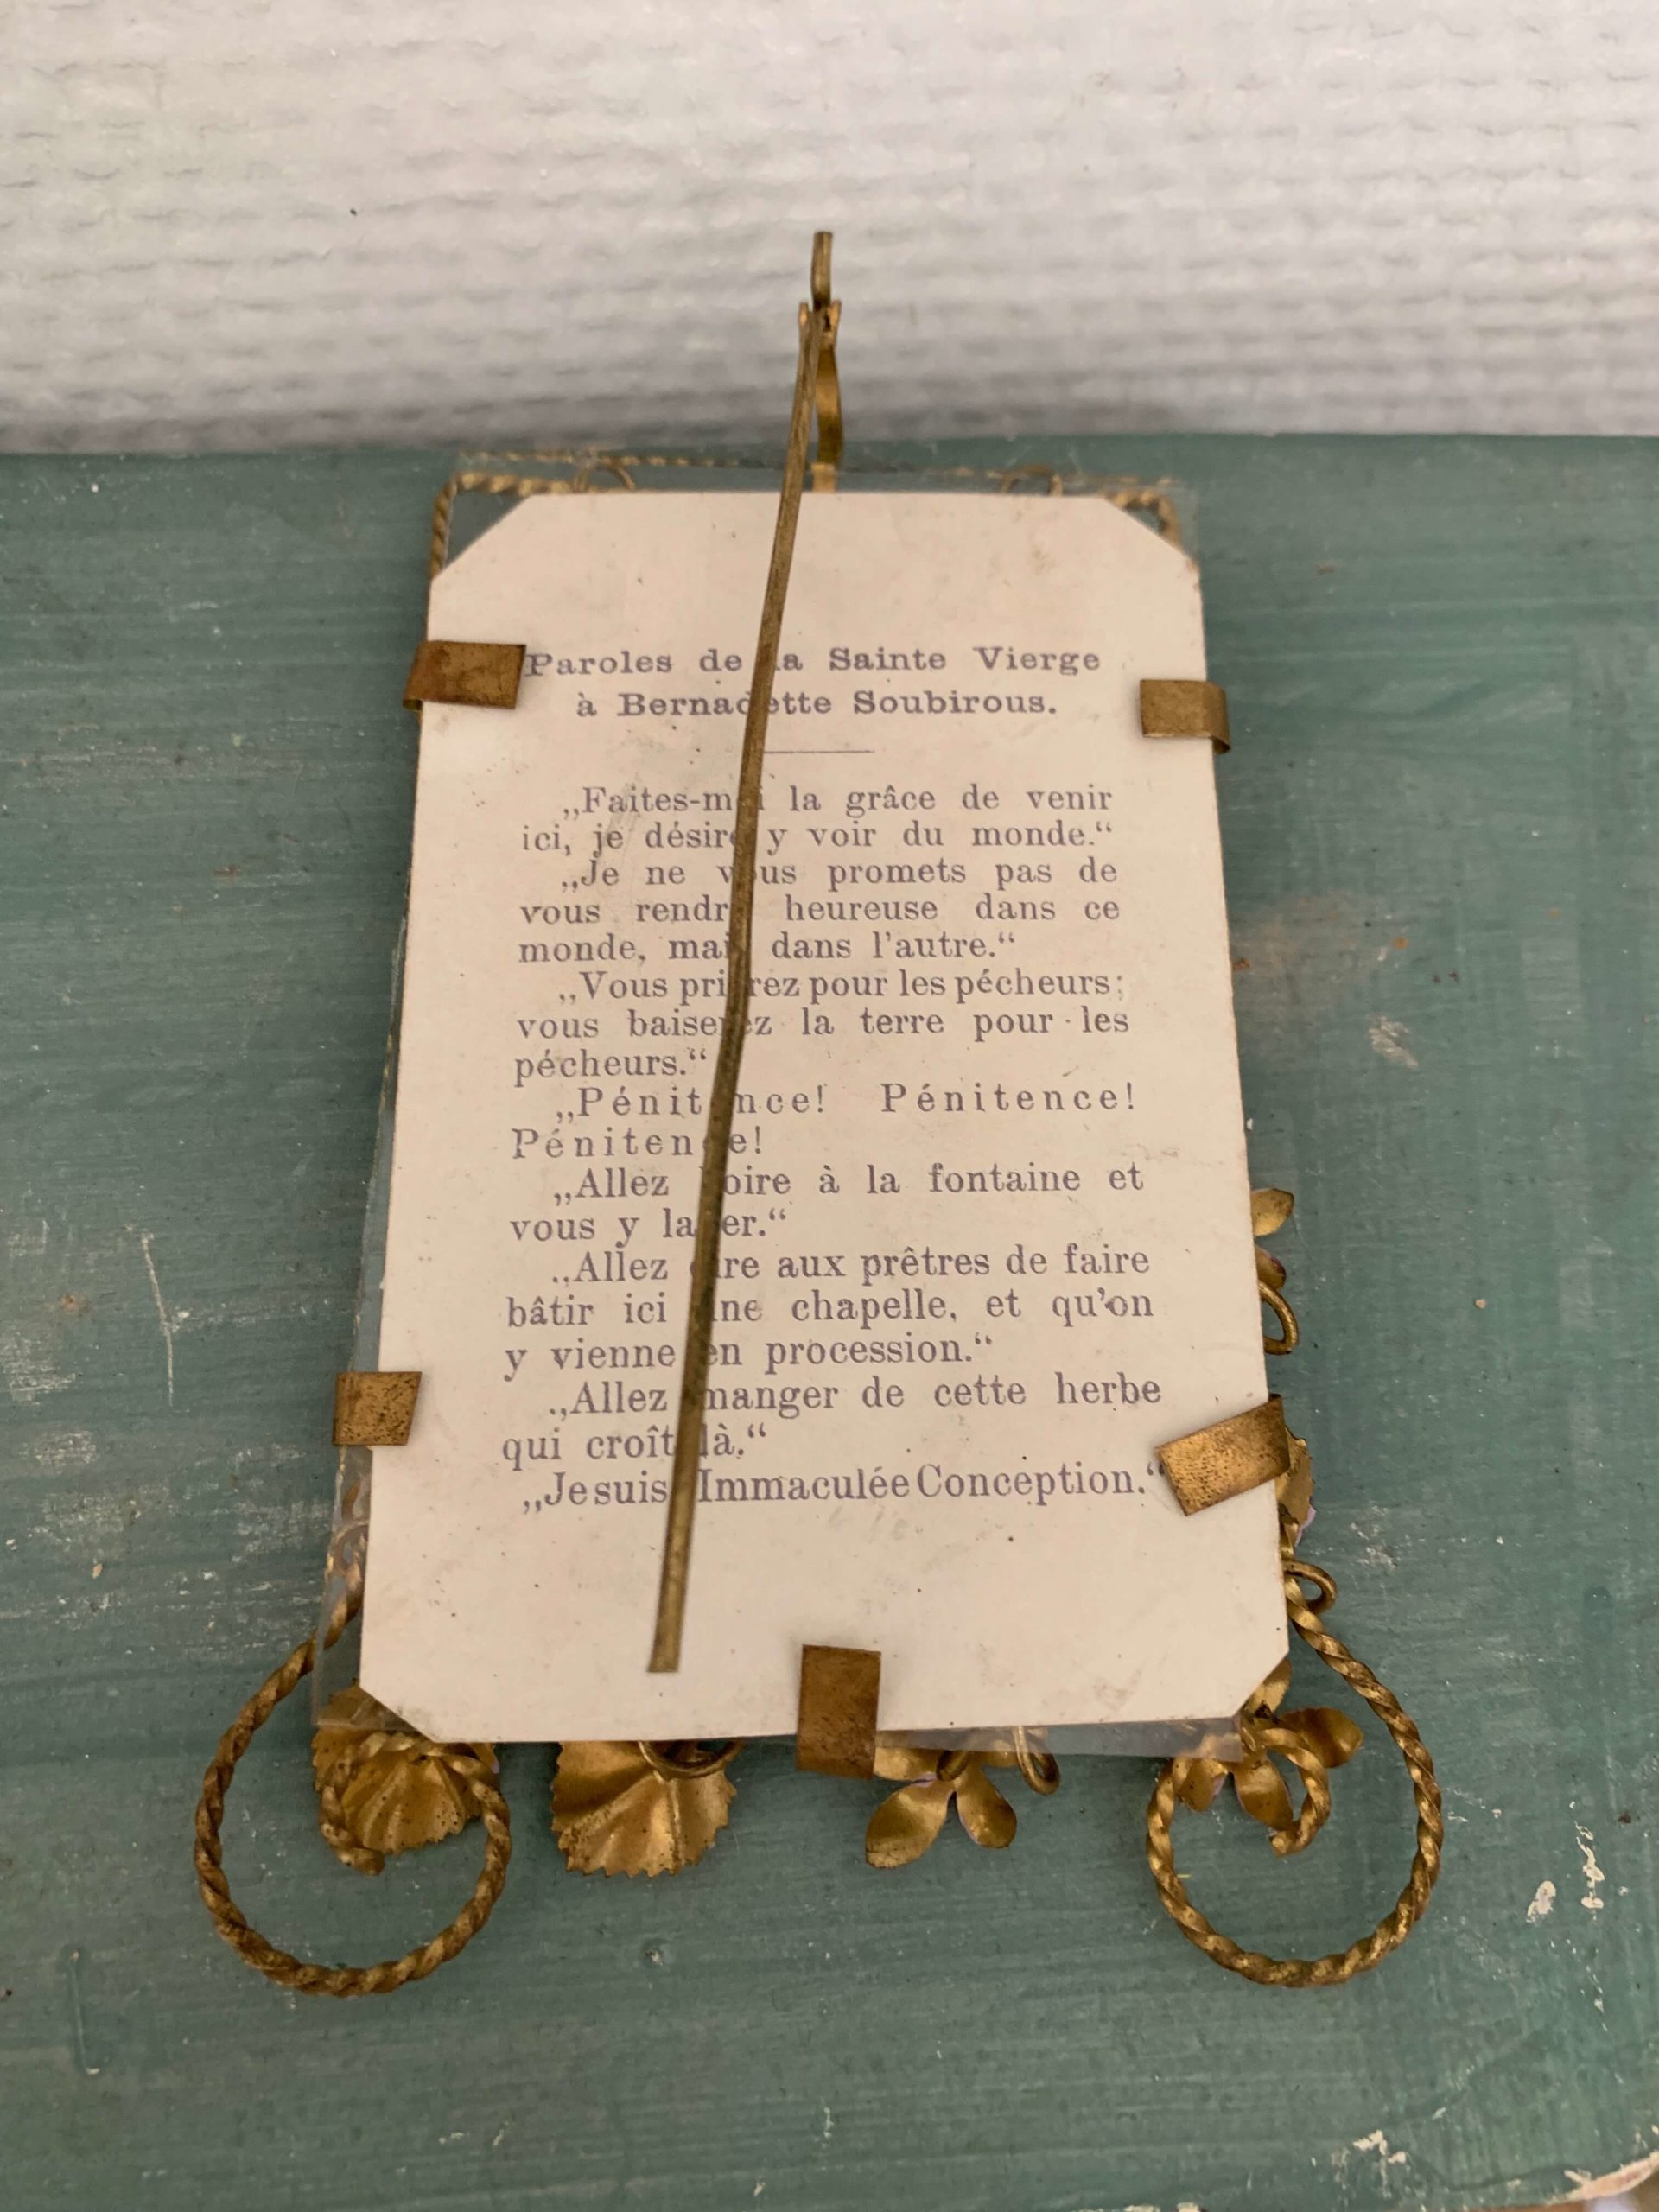 Paroles de la Sainte Vierge
à Bernadette Soubirous.
„Faites-moi la grâce de venir
ici, je désire y voir du monde.“
„Je ne vous promets pas de
vous rendre heureuse dans ce
monde, mais dans l'autre.“
„Vous prierez pour les pécheurs;
vous baiserez la terre pour les
pécheurs.“
„Pénitence! Pénitence!
Pénitence!
„Allez boire à la fontaine et
vous y laver.“
„Allez dire aux prêtres de faire
bâtir ici une chapelle, et qu'on
y vienne en procession.“
„Allez manger de cette herbe
qui croît là.“
„Je suis Immaculée Conception.“